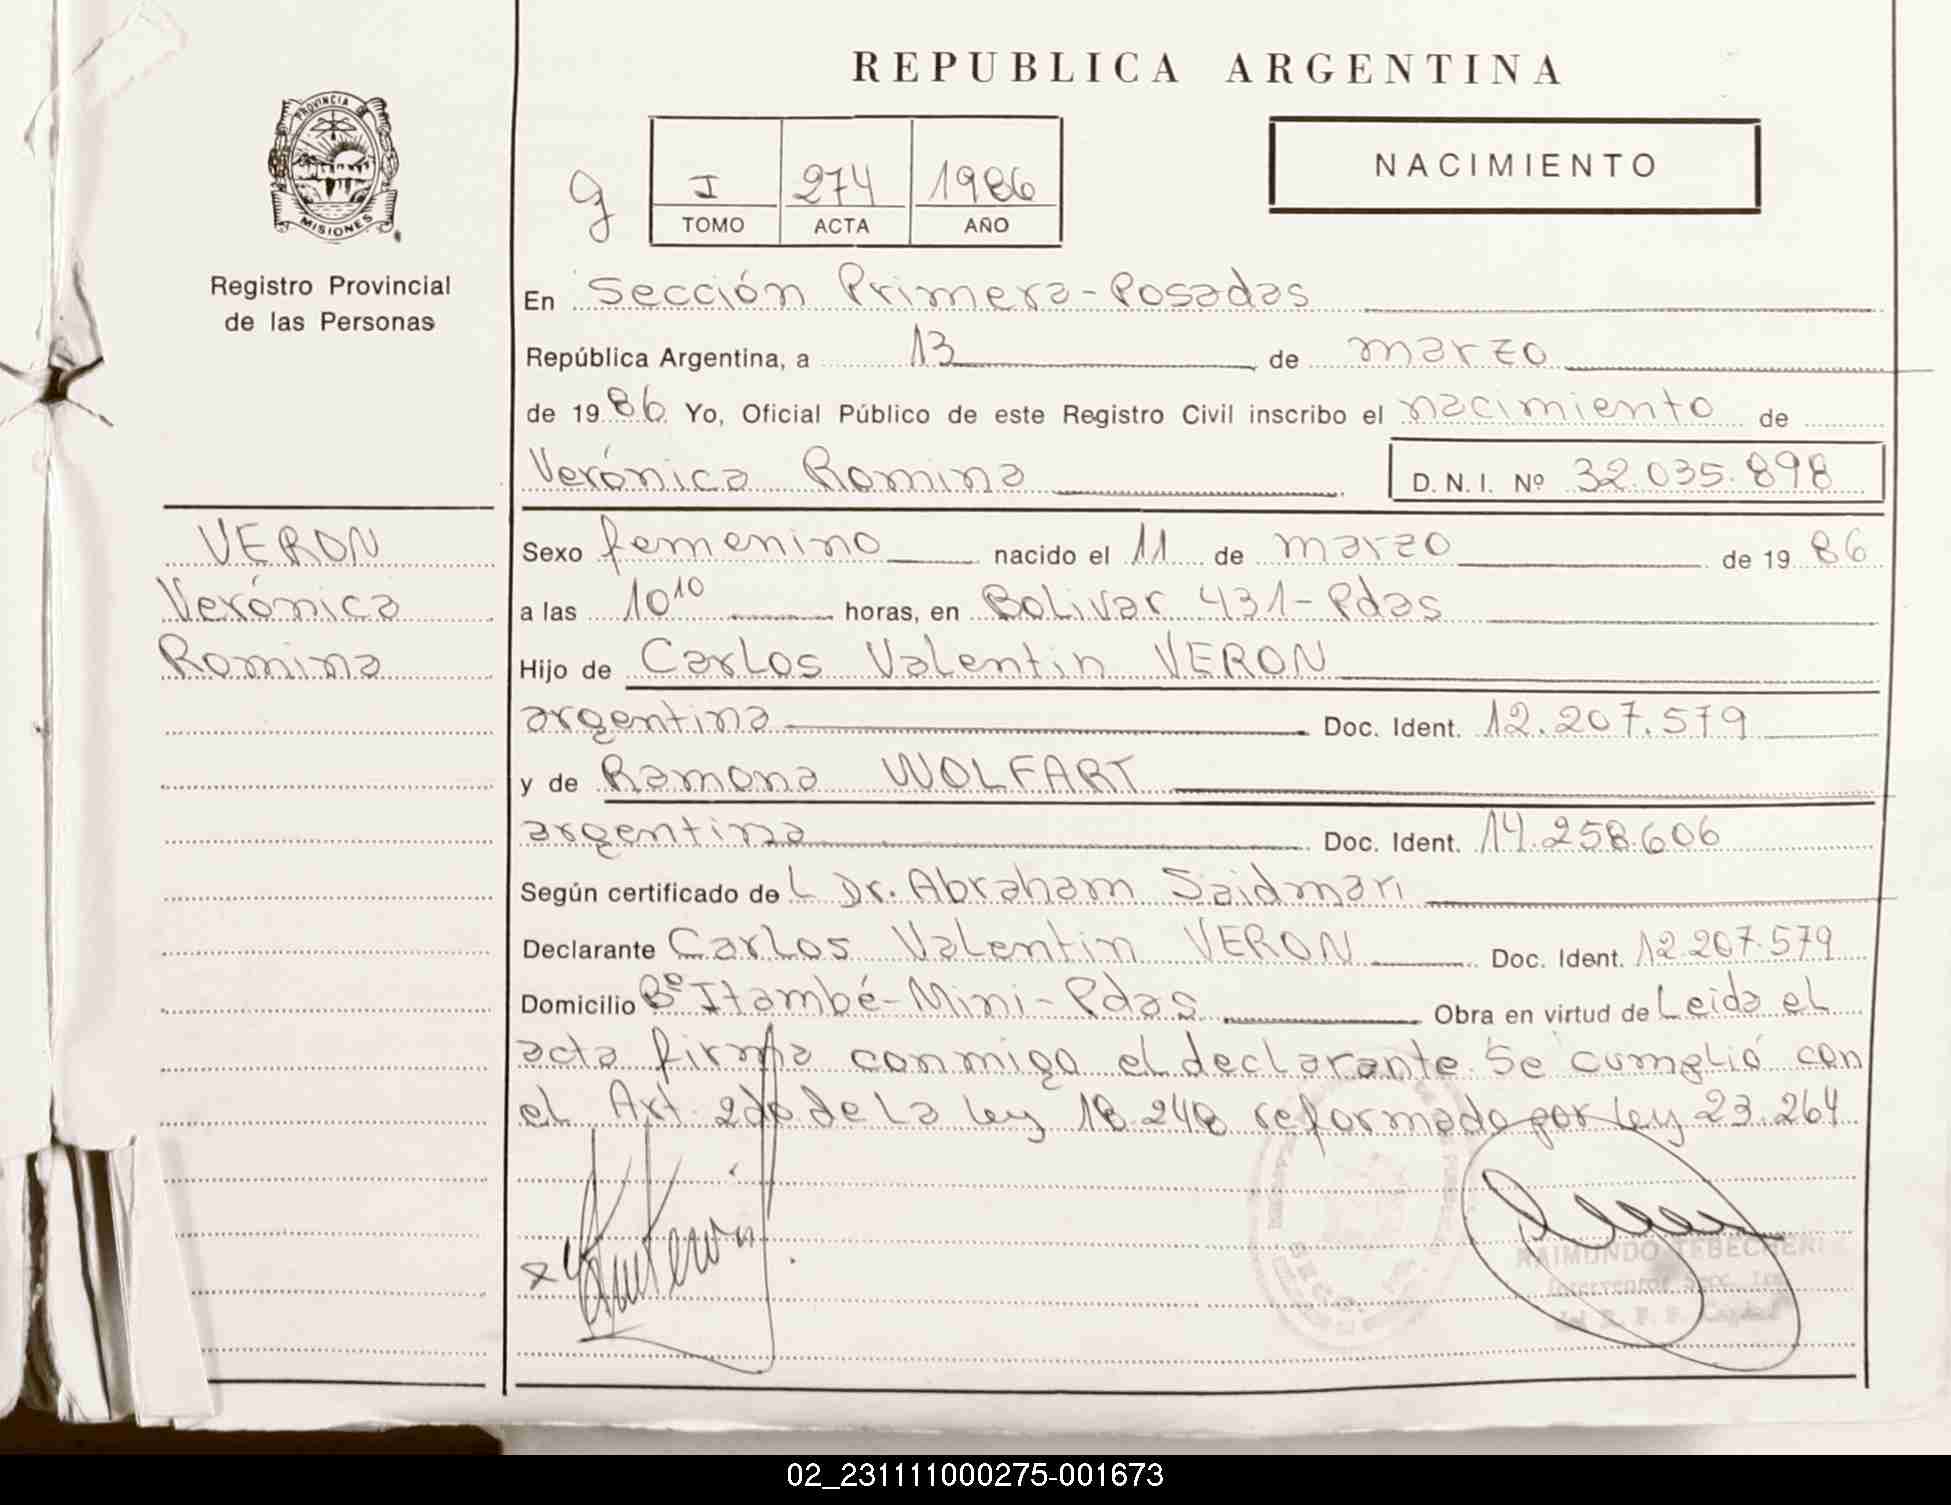 REPUBLICA ARGENTINA
PROVINCIA DE
MISIONES
Registro Provincial
de las Personas
g
I 274 1986
TOMO ACTA AÑO
NACIMIENTO
En Sección Primera-Posadas
República Argentina, a 13 de marzo
de 1986 Yo, Oficial Público de este Registro Civil inscribo el nacimiento de
Verónica Romina D. N. I. Nº 32.035.898
VERON
Verónica
Romina
Sexo femenino nacido el 11 de marzo de 1986
a las 10 10 horas, en Bolivar 431-Pdas
Hijo de Carlos Valentin VERON
argentina Doc. Ident. 12.207.579
y de Ramona WOLFART
argentina Doc. Ident. 14.258.606
Según certificado del Dr. Abraham Saidman
Declarante Carlos Valentin VERON Doc. Ident. 12.207.579
Domicilio Bº Itambé-Mini-Pdas Obra en virtud de Leida el
acta firma conmigo el declarante. Se cumplió con
el Art. 2do de la ley 18.248 reformado por ley 23.264
RAIMUNDO TEBECHERI
Interventor Secc. 1ra
del R. P. P. Capital
02_231111000275-001673